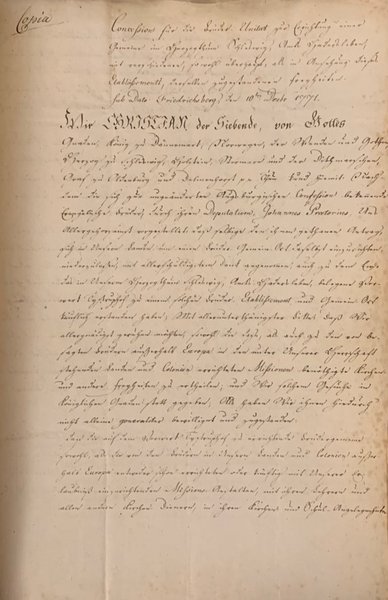 Copia
Concession für die Brüder Unitet zur Errichtung einer
Gemeine im Herzogthum Schleswig, Amts Hadersleben,
mit verschiedenen sowohl überhaupt, als in Ansehung dieses
Etablissements, derselben zugestandenen Freyheiten.
sub Dato Friedrichsberg, den 10ten Decbr 1771.
Wir CHRISTIAN der Siebende, von Gottes
Gnaden, König zu Dännemark, Norwegen, der Wenden und Gothen,
Herzog zu Schleswig, Holstein, Stormarn und der Dithmarschen,
Graf zu Oldenburg und Delmenhorst pp. Thun kund hiemit: Nachdem
die sich zur ungeänderten Augsburgischen Confession bekennende
Evangelische Brüder, durch ihren Deputatum, Johannes Prætorius, Uns
Allergehorsamst vorgestellet, daß selbige den ihnen gethanen Antrag,
sich in Unsern Landen um einen Brüder Gemein Ort daselbst einzurichten
niederzulaßen, mit allerschuldigstem Dank angenommen, auch zu dem Ende
das in Unserm Herzogthum Schleswig, Amts Hadersleben, belegene Vor-
werk Tystrüphof zu einem solchen Brüder Etablissement und Gemein Ort
käuflich erstanden haben; Mit allerunterthänigster Bitte, daß Wir
allergnädigst geruhen möchten, sowohl für diese, als auch zu den von be-
sagten Brüdern außerhalb Europa in den unter Unserer Herrschaft
stehenden Landen und Colonien errichteten Missionen benöthigte Kirchen
und andere Freyheiten zu ertheilen, und Wir solchem Gesuche in
Königlichen Gnaden statt gegeben. Als haben Wir ihnen hiedurch
nicht alleine generaliter bewilliget und zugestanden
Daß die auf dem Vorwerk Tystrüphof zu errichtende Brüdergemeine
sowohl, als die von den Brüdern in Unsern Landen und Colonien außer-
halb Europa entweder schon errichteten oder künftig mit Unserer Er-
laubniß einzurichtenden Missions-Anstalten, mit ihren Lehrern und
allen andern Kirchen Dienern, in ihren Kirchen und Schul-Angelegenheiten